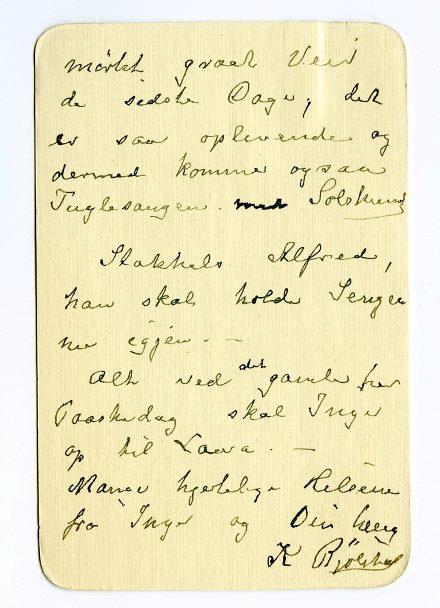 mörkt graat Veir
de sidste Dage, det
er saa oplivende og
dermed komme ogsaa
Fuglesangen. med Solskinnet
Stakkels Alfred,
han skal holde Sengen
nu igjen. -
Alt ved det gamle her
Paaskedag skal Inger
op til Laara. -
Mange hjertelige Hilsener
fra Inger og Din heng
K